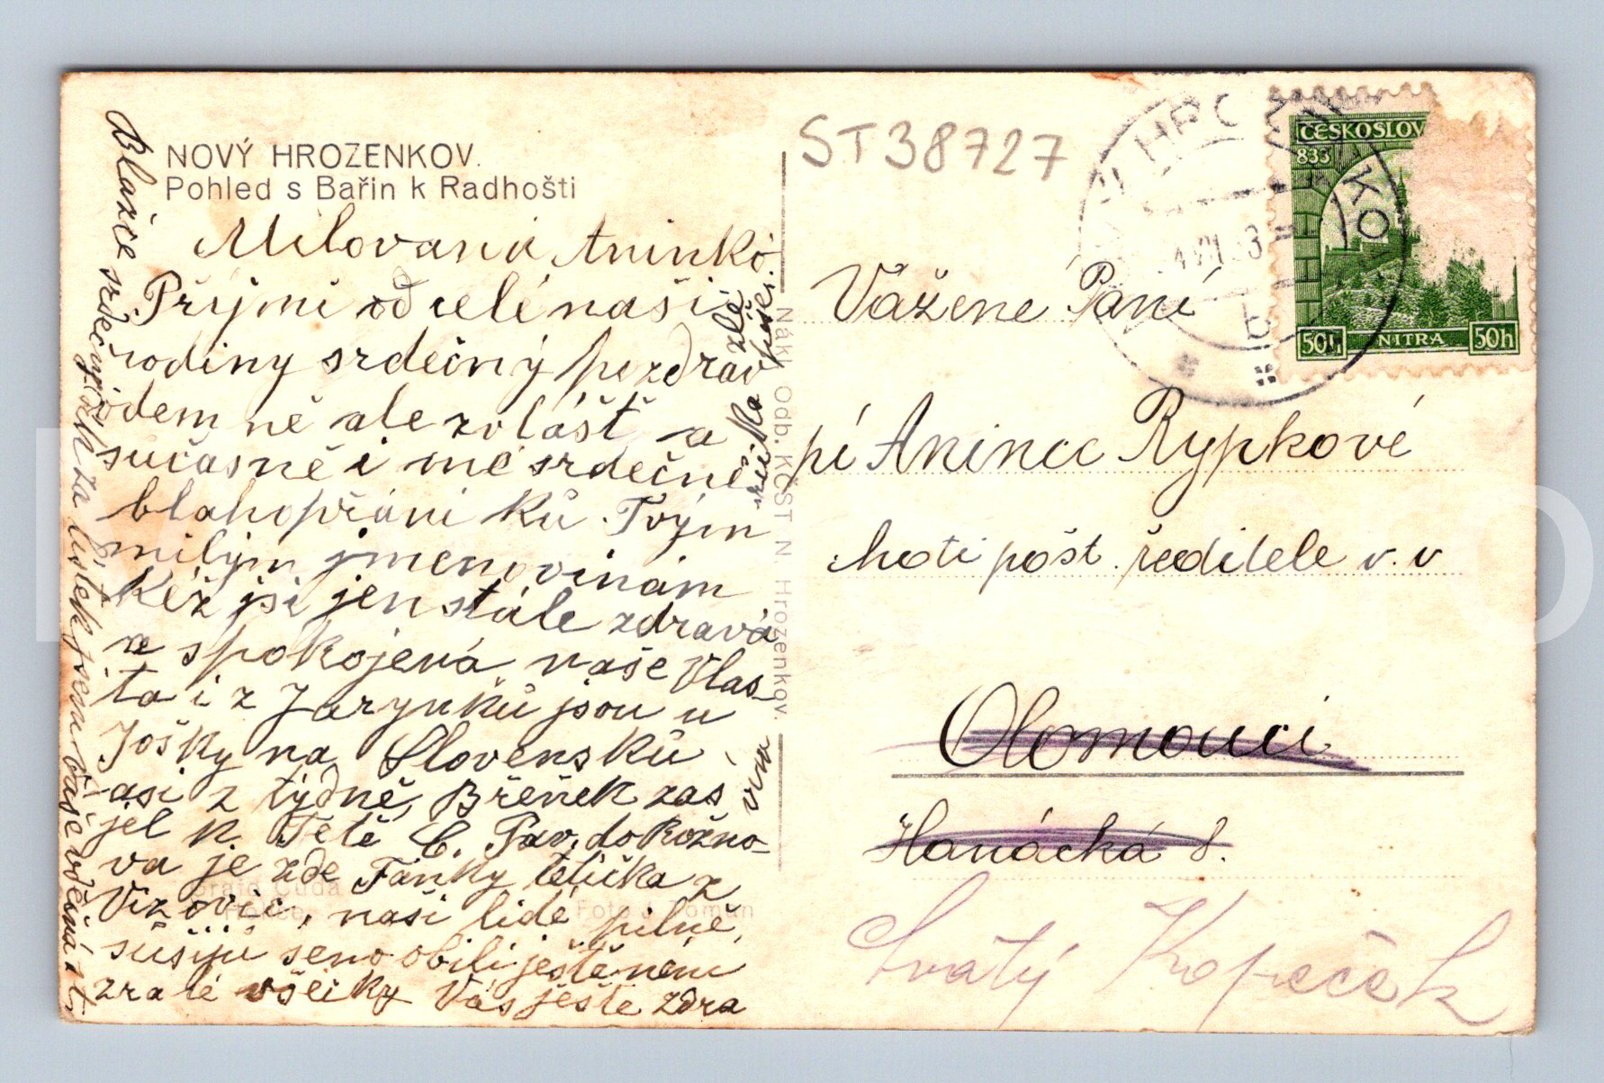 NOVÝ HROZENKOV.
Pohled s Bařin k Radhošti
ST38727
Milovaná Aninko
Přijmi od celé naši
rodiny srdečný pozdrav
ode mně ale zvlášť a
sučasně i mé srdečné
blahopřání ků Tvým
milým jmenovinám
Kéž jsi jen stále zdravá
a spokojená, naše Vlas-
ta i z Jarynků jsou u
Jošky na Slovensků
asi 2 týdně, Břeňek zas
jel k Tetě C. Pav. do Rožno-
va je zde Fanky tetička z
Vizovic, naši lidé pilně
sušijů seno obili ještě není
zralé všeiky Vás ještě zdra
Blažce srdečný
za lístek jsem Vaše vděčná st.
zlé
ruika
Nákl. Odb. KČST N. Hrozenkov.
Foto J. Toman
ČESKOSLOV
833
50h NITRA 50h
Vážené Paní
pí Anince Rypkové
choti pošt. ředitele v. v
Olomouci
Hanácká 8.
Svatý Kopeček